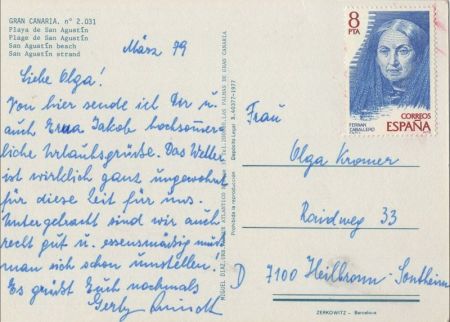 GRAN CANARIA, nº 2.031
Playa de San Agustín
Plage de San Agustin
San Agustin beach
San Agustin strand
März 79
Liebe Olga!
Von hier sende ich Dir u
auch Erna Jakob hochsommer-
liche Urlaubsgrüsse. Das Wetter
ist wirklich ganz ungewohnt
für diese Zeit für uns.
Untergebracht sind wir auch
recht gut u. essensmäßig muß
man sich schon umstellen.
Es grüßt Euch nochmals
Gerly
Depósito Legal B. 40377-1977
Prohibida la reproducción
8
PTA
FERNAN
CABALLERO
CORREOS
ESPAÑA
Frau
Olga Kromer
Raidweg 33
D 7100 Heilbronn-Sontheim
ZERKOWITZ - Barcelona